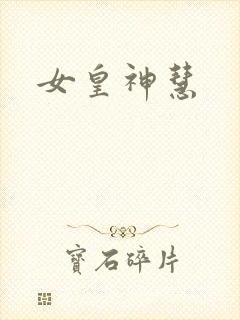 女皇神慧
寶石碎片